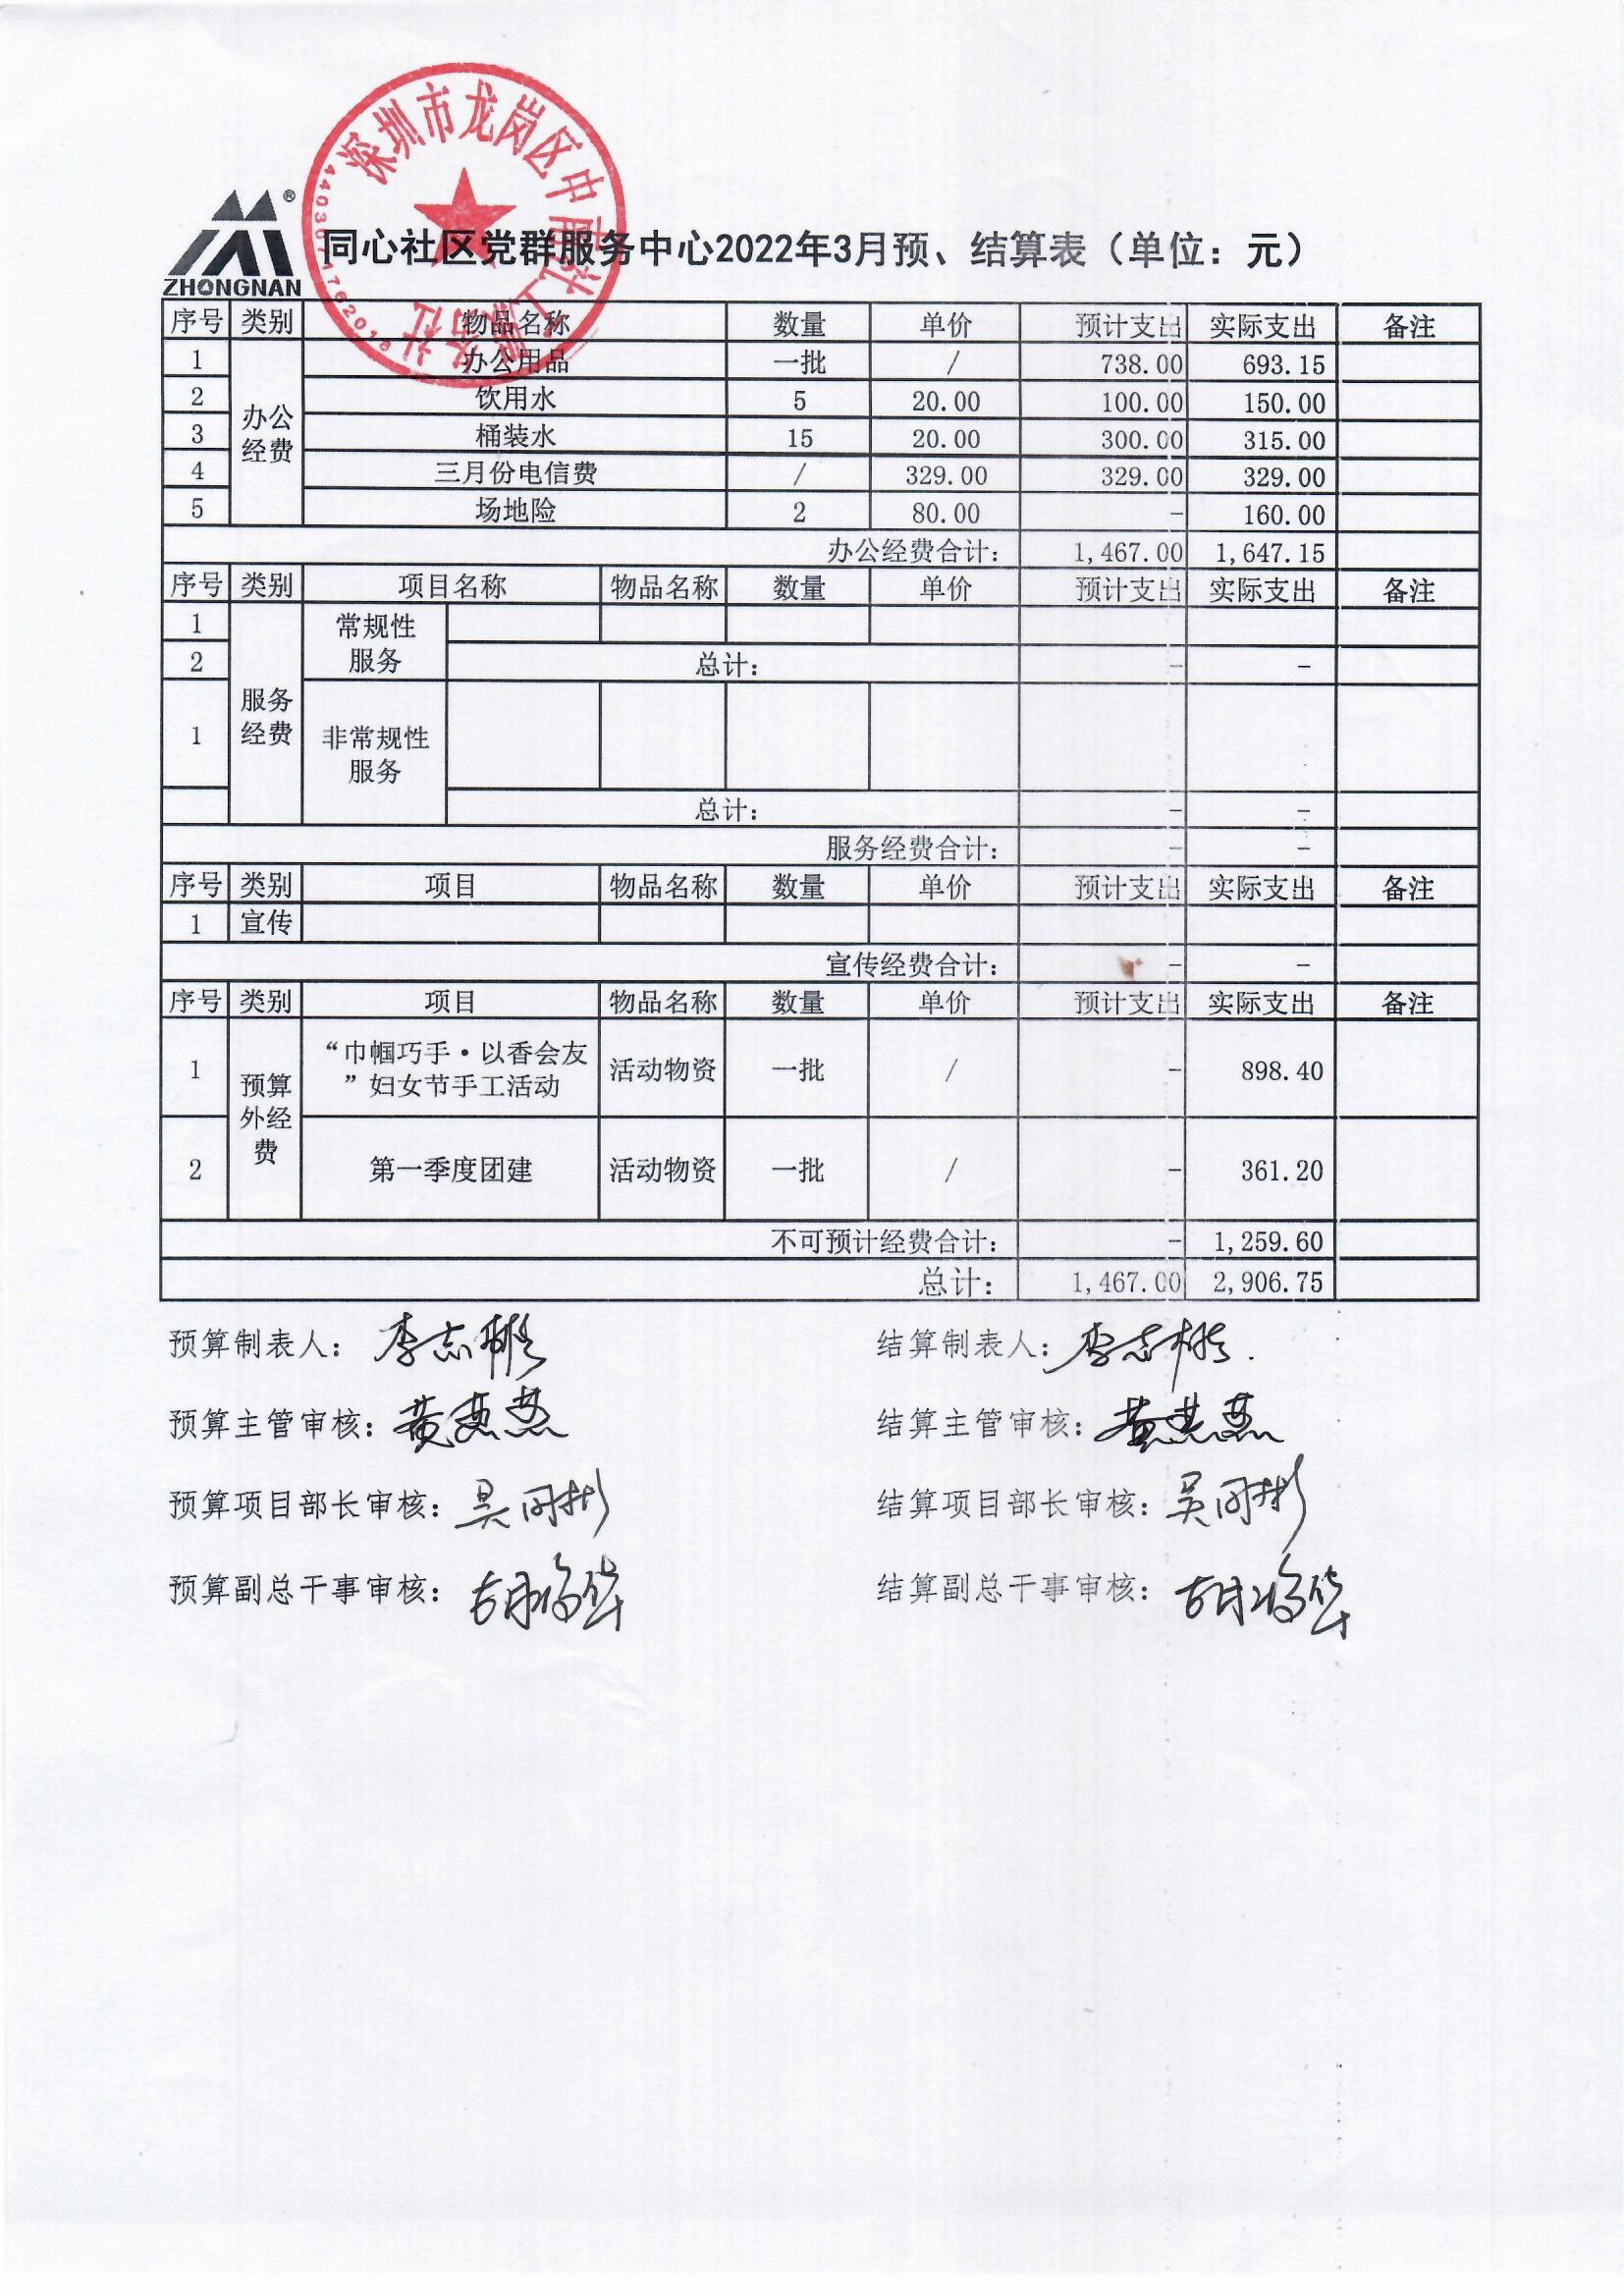 深圳市龙岗区中南社工服务社
ZHONGNAN
同心社区党群服务中心2022年3月预、结算表（单位：元）
序号 类别 物品名称 数量 单价 预计支出 实际支出 备注
1 办公经费 办公用品 一批 / 738.00 693.15
2 饮用水 5 20.00 100.00 150.00
3 桶装水 15 20.00 300.00 315.00
4 三月份电信费 / 329.00 329.00 329.00
5 场地险 2 80.00 - 160.00
办公经费合计： 1,467.00 1,647.15
序号 类别 项目名称 物品名称 数量 单价 预计支出 实际支出 备注
1 服务经费 常规性服务
2 总计： - -
1 非常规性服务
总计： - -
服务经费合计： - -
序号 类别 项目 物品名称 数量 单价 预计支出 实际支出 备注
1 宣传
宣传经费合计： - -
序号 类别 项目 物品名称 数量 单价 预计支出 实际支出 备注
1 预算外经费 “巾帼巧手·以香会友”妇女节手工活动 活动物资 一批 / - 898.40
2 第一季度团建 活动物资 一批 / - 361.20
不可预计经费合计： - 1,259.60
总计： 1,467.00 2,906.75
预算制表人： 李志彬 结算制表人： 李志彬
预算主管审核： 黄燕燕 结算主管审核： 黄燕燕
预算项目部长审核： 吴同彬 结算项目部长审核： 吴同彬
预算副总干事审核： 结算副总干事审核：